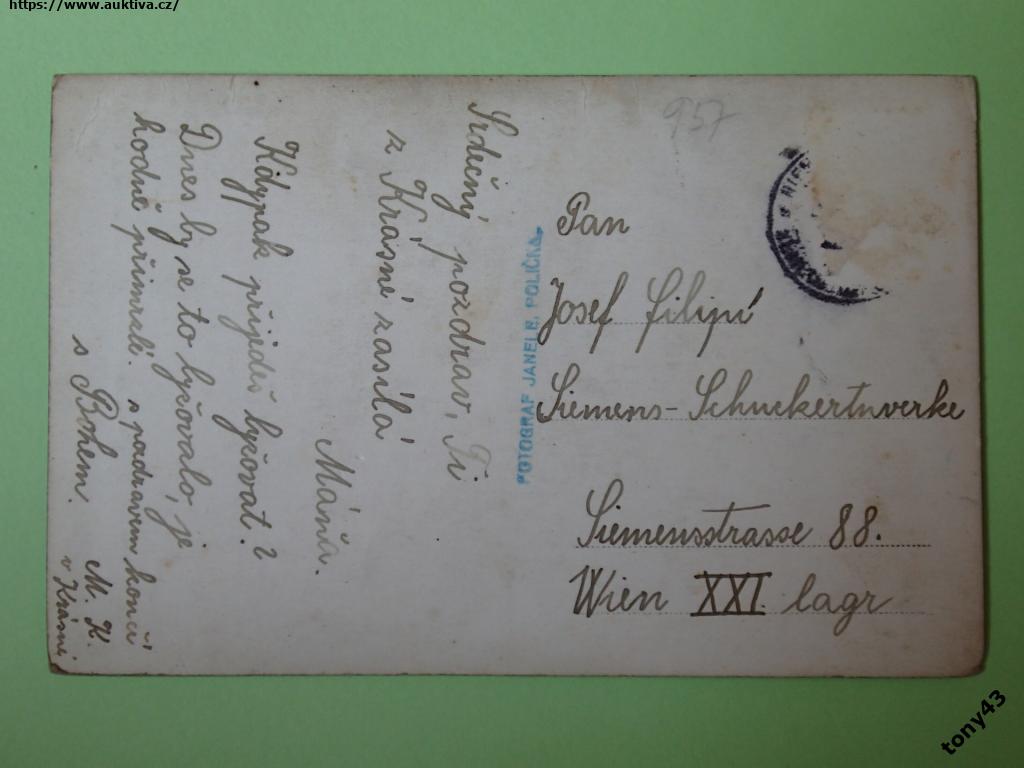 https://www.auktiva.cz/
957
Srdečný pozdrav, Ti
z Krásné zasílá
Máňa.
Kdypak přijedeš lyžovat?
Dnes by se to lyžovalo, je
hodně přimrzlé. s pozdravem končí
s Bohem. M. K.
v Krásní
FOTOGRAF JANELE, POLIČKA.
Pan
Josef Filipí
Siemens-Schuckertwerke
Siemensstrasse 88.
Wien XXI lagr
tony43